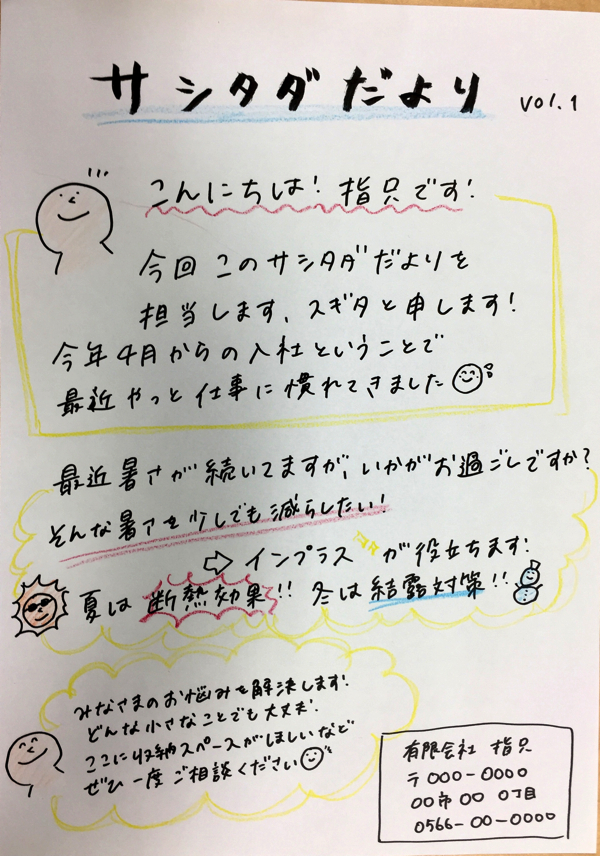 サシタダだより vol.1
こんにちは！指只です！
今回このサシタダだよりを
担当します、スギタと申します！
今年4月からの入社ということで
最近やっと仕事に慣れてきました
最近暑さが続いてますが、いかがお過ごしですか？
そんな暑さを少しでも減らしたい！
⇨ インプラスが役立ちます！
夏は断熱効果！！ 冬は結露対策！！
みなさまのお悩みを解決します！
どんな小さなことでも大丈夫！
ここに収納スペースがほしいなど
ぜひ一度ご相談ください
有限会社 指只
〒000-0000
〇〇市〇〇 〇丁目
0566-00-0000